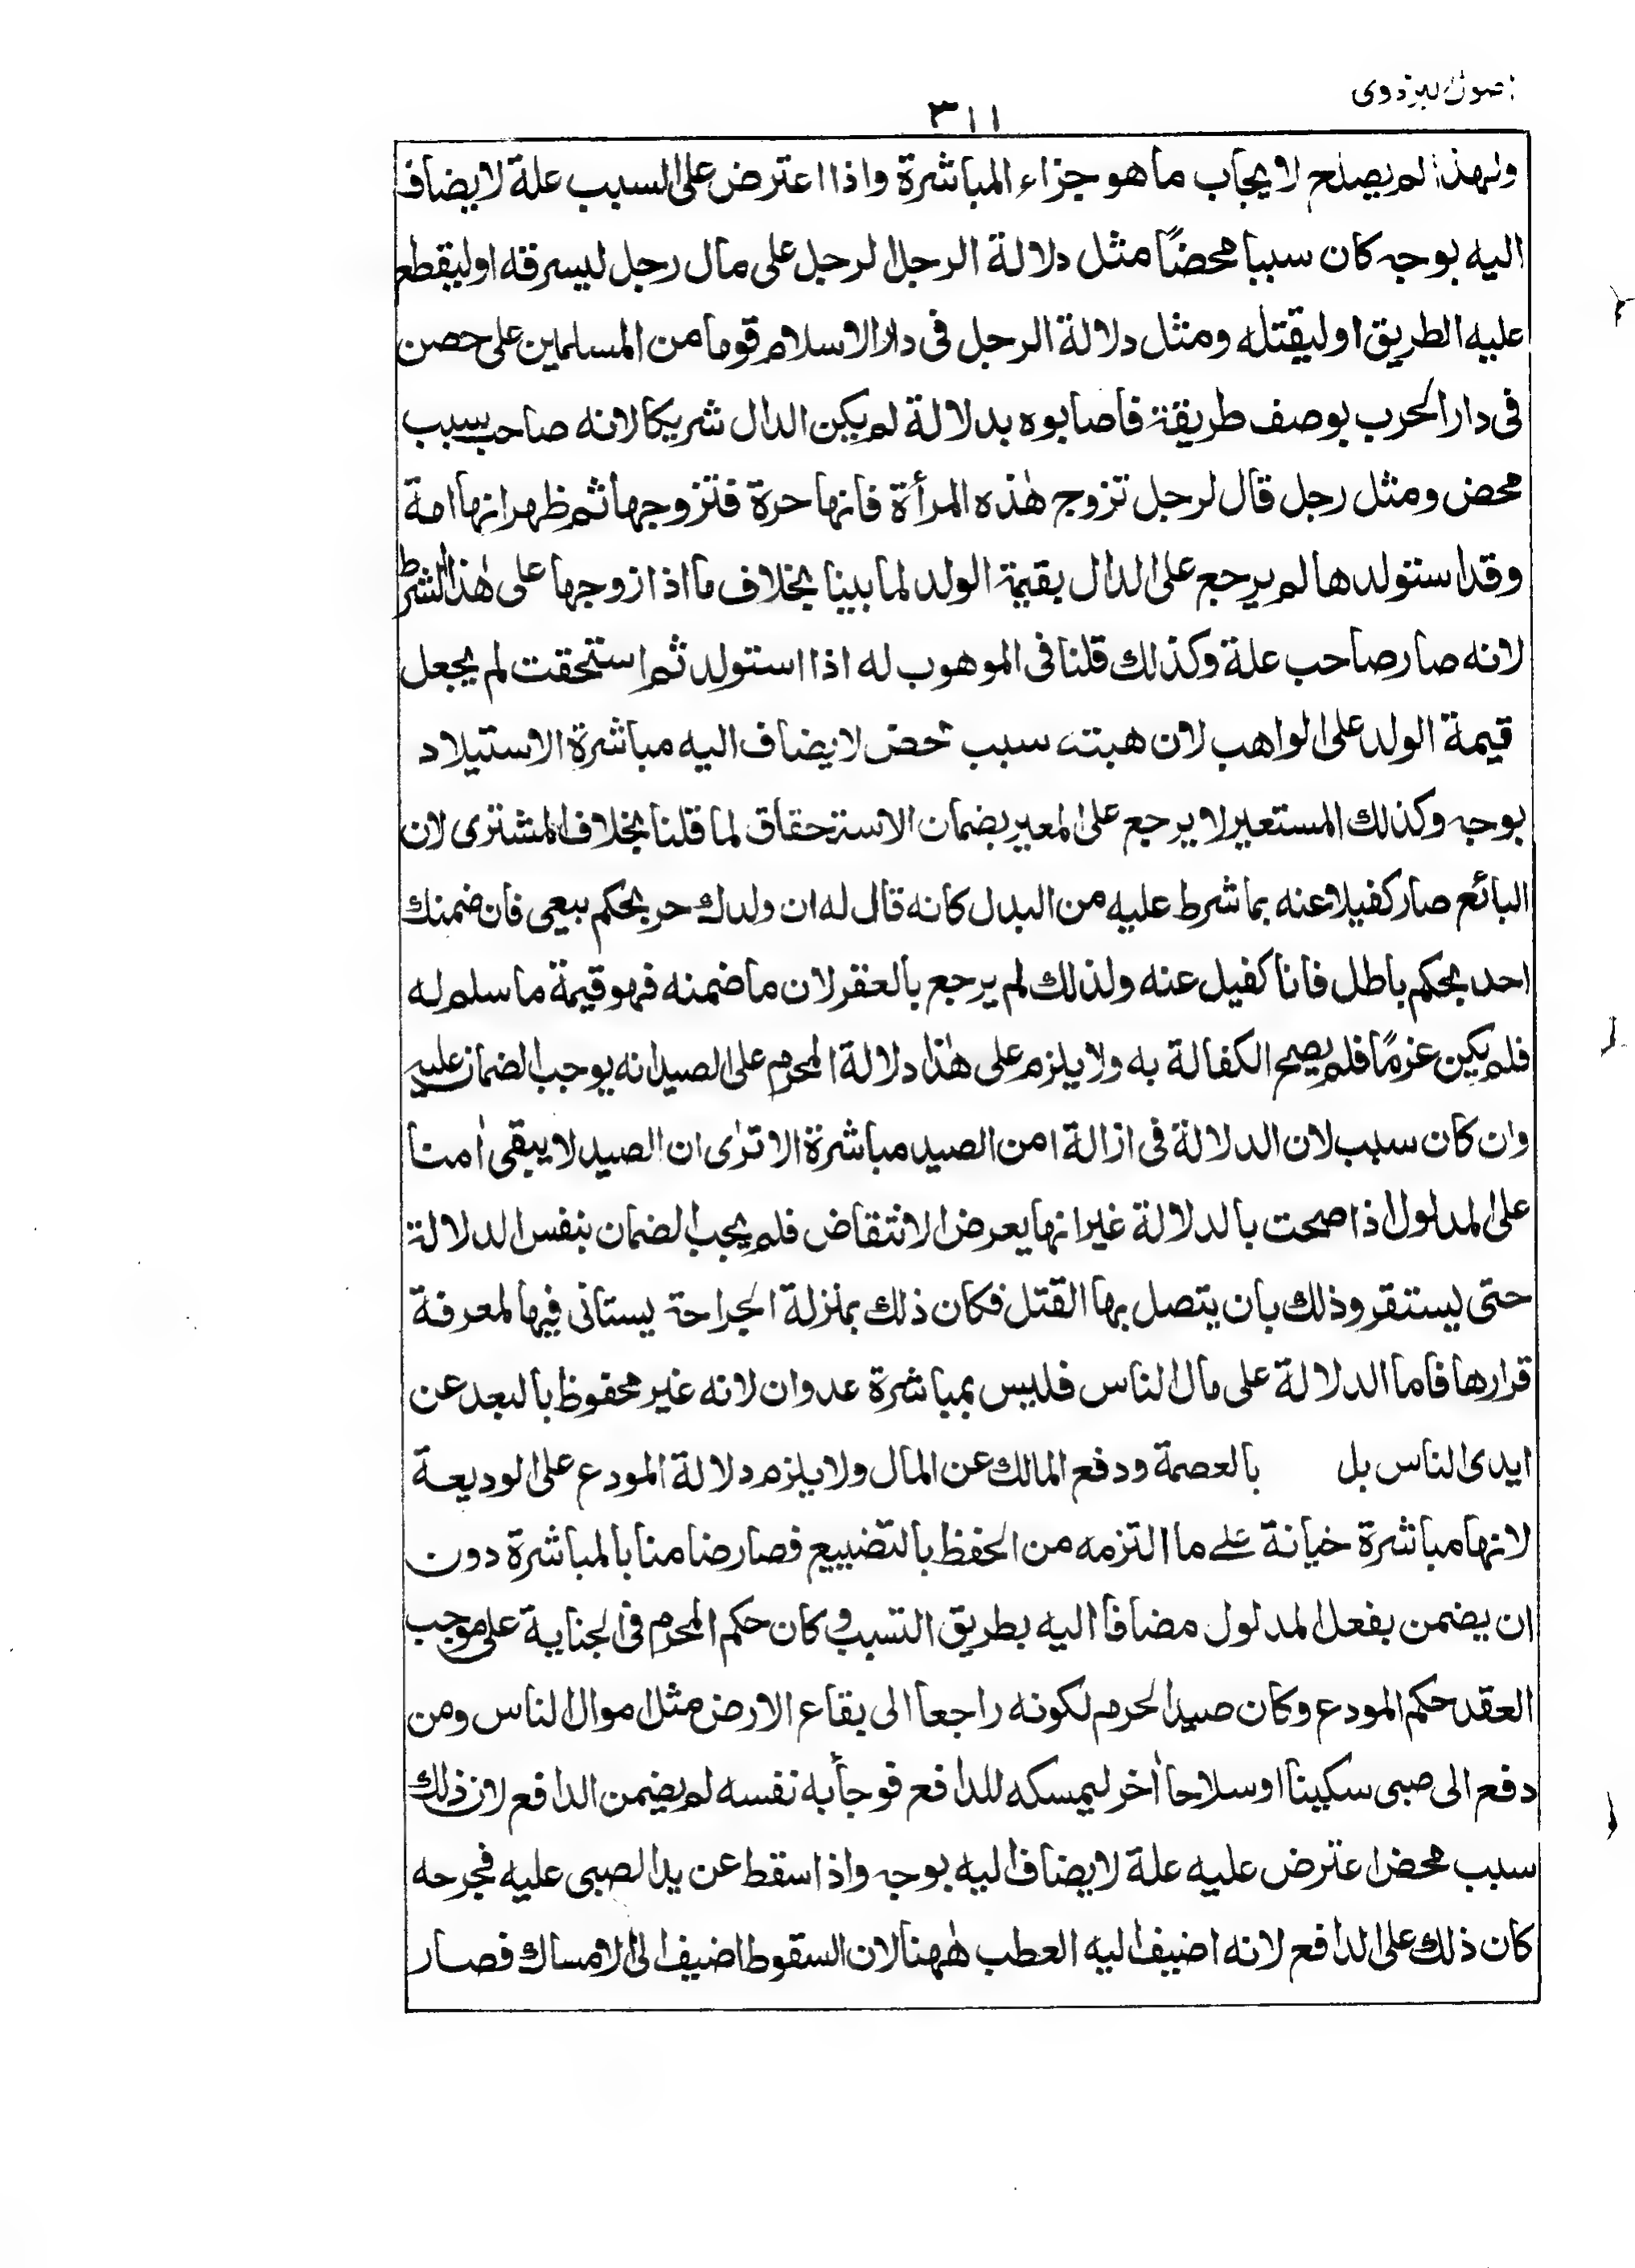 اصول بزدوی
۳۱۱
ولهذا لم يصلح لايجاب ما هو جزاء المباشرة واذا اعترض على السبب علة لا يضاف
اليه بوجه كان سببا محضًا مثل دلالة الرجل الرجل على مال رجل ليسرقه او ليقطع
عليه الطريق او ليقتله ومثل دلالة الرجل فى دار الاسلام قوما من المسلمين على حصن
فى دار الحرب بوصف طريقة فاصابوه بدلالة لم يكن الدال شريكا لانه صاحب سبب
محض ومثل رجل قال لرجل تزوج هٰذه المرأة فانها حرة فتزوجها ثم ظهر انها امة
وقد استولدها لم يرجع على الدال بقيمة الولد لما بينا بخلاف ما اذا زوجها على هٰذا الشرط
لانه صار صاحب علة وكذلك قلنا فى الموهوب له اذا استولد ثم استحقت لم يجعل
قيمة الولد على الواهب لان هبته سبب محض لا يضاف اليه مباشرة الاستيلاد
بوجه وكذلك المستعير لا يرجع على المعير بضمان الاستحقاق لما قلنا بخلاف المشترى لان
البائع صار كفيلا عنه بما شرط عليه من البدل كانه قال له ان ولدك حر بحكم بيعى فان ضمنك
احد بحكم باطل فانا كفيل عنه ولذلك لم يرجع بالعقر لان ما ضمنه فهو قيمة ما سلم له
فلم يكن عزمًا فلم يصح الكفالة به ولا يلزم على هٰذا دلالة المحرم على الصيد انه يوجب الضمان عليه
وان كان سبب لان الدلالة فى ازالة امن الصيد مباشرة الا ترٰى ان الصيد لا يبقى اٰمنا
على المدلول اذا صحت بالدلالة غير انها يعرض الانتقاض فلم يجب الضمان بنفس الدلالة
حتى يستقر وذلك بان يتصل بها القتل فكان ذلك بمنزلة الجراحة يستانى فيها لمعرفة
قرارها فاما الدلالة على مال الناس فليس بمباشرة عدوان لانه غير محفوظ بالبعد عن
ايدى الناس بل بالعصمة ودفع المالك عن المال ولا يلزم دلالة المودع على الوديعة
لانها مباشرة خيانة علے ما التزمه من الحفظ بالتضييع فصار ضامنا بالمباشرة دون
ان يضمن بفعل المدلول مضافا اليه بطريق التسبب و كان حكم المحرم فى الجناية على موجب
العقد حكم المودع وكان صيد الحرم لكونه راجعا الى بقاع الارض مثل اموال الناس ومن
دفع الى صبى سكينا او سلاحا اٰخر ليمسكه للدافع فوجأ به نفسه لم يضمن الدافع لان ذلك
سبب محض اعترض عليه علة لا يضاف اليه بوجه واذا سقط عن يد الصبى عليه فجرحه
كان ذلك على الدافع لانه اضيف اليه العطب هٰهنا لان السقوط اضيف الى الامساك فصار